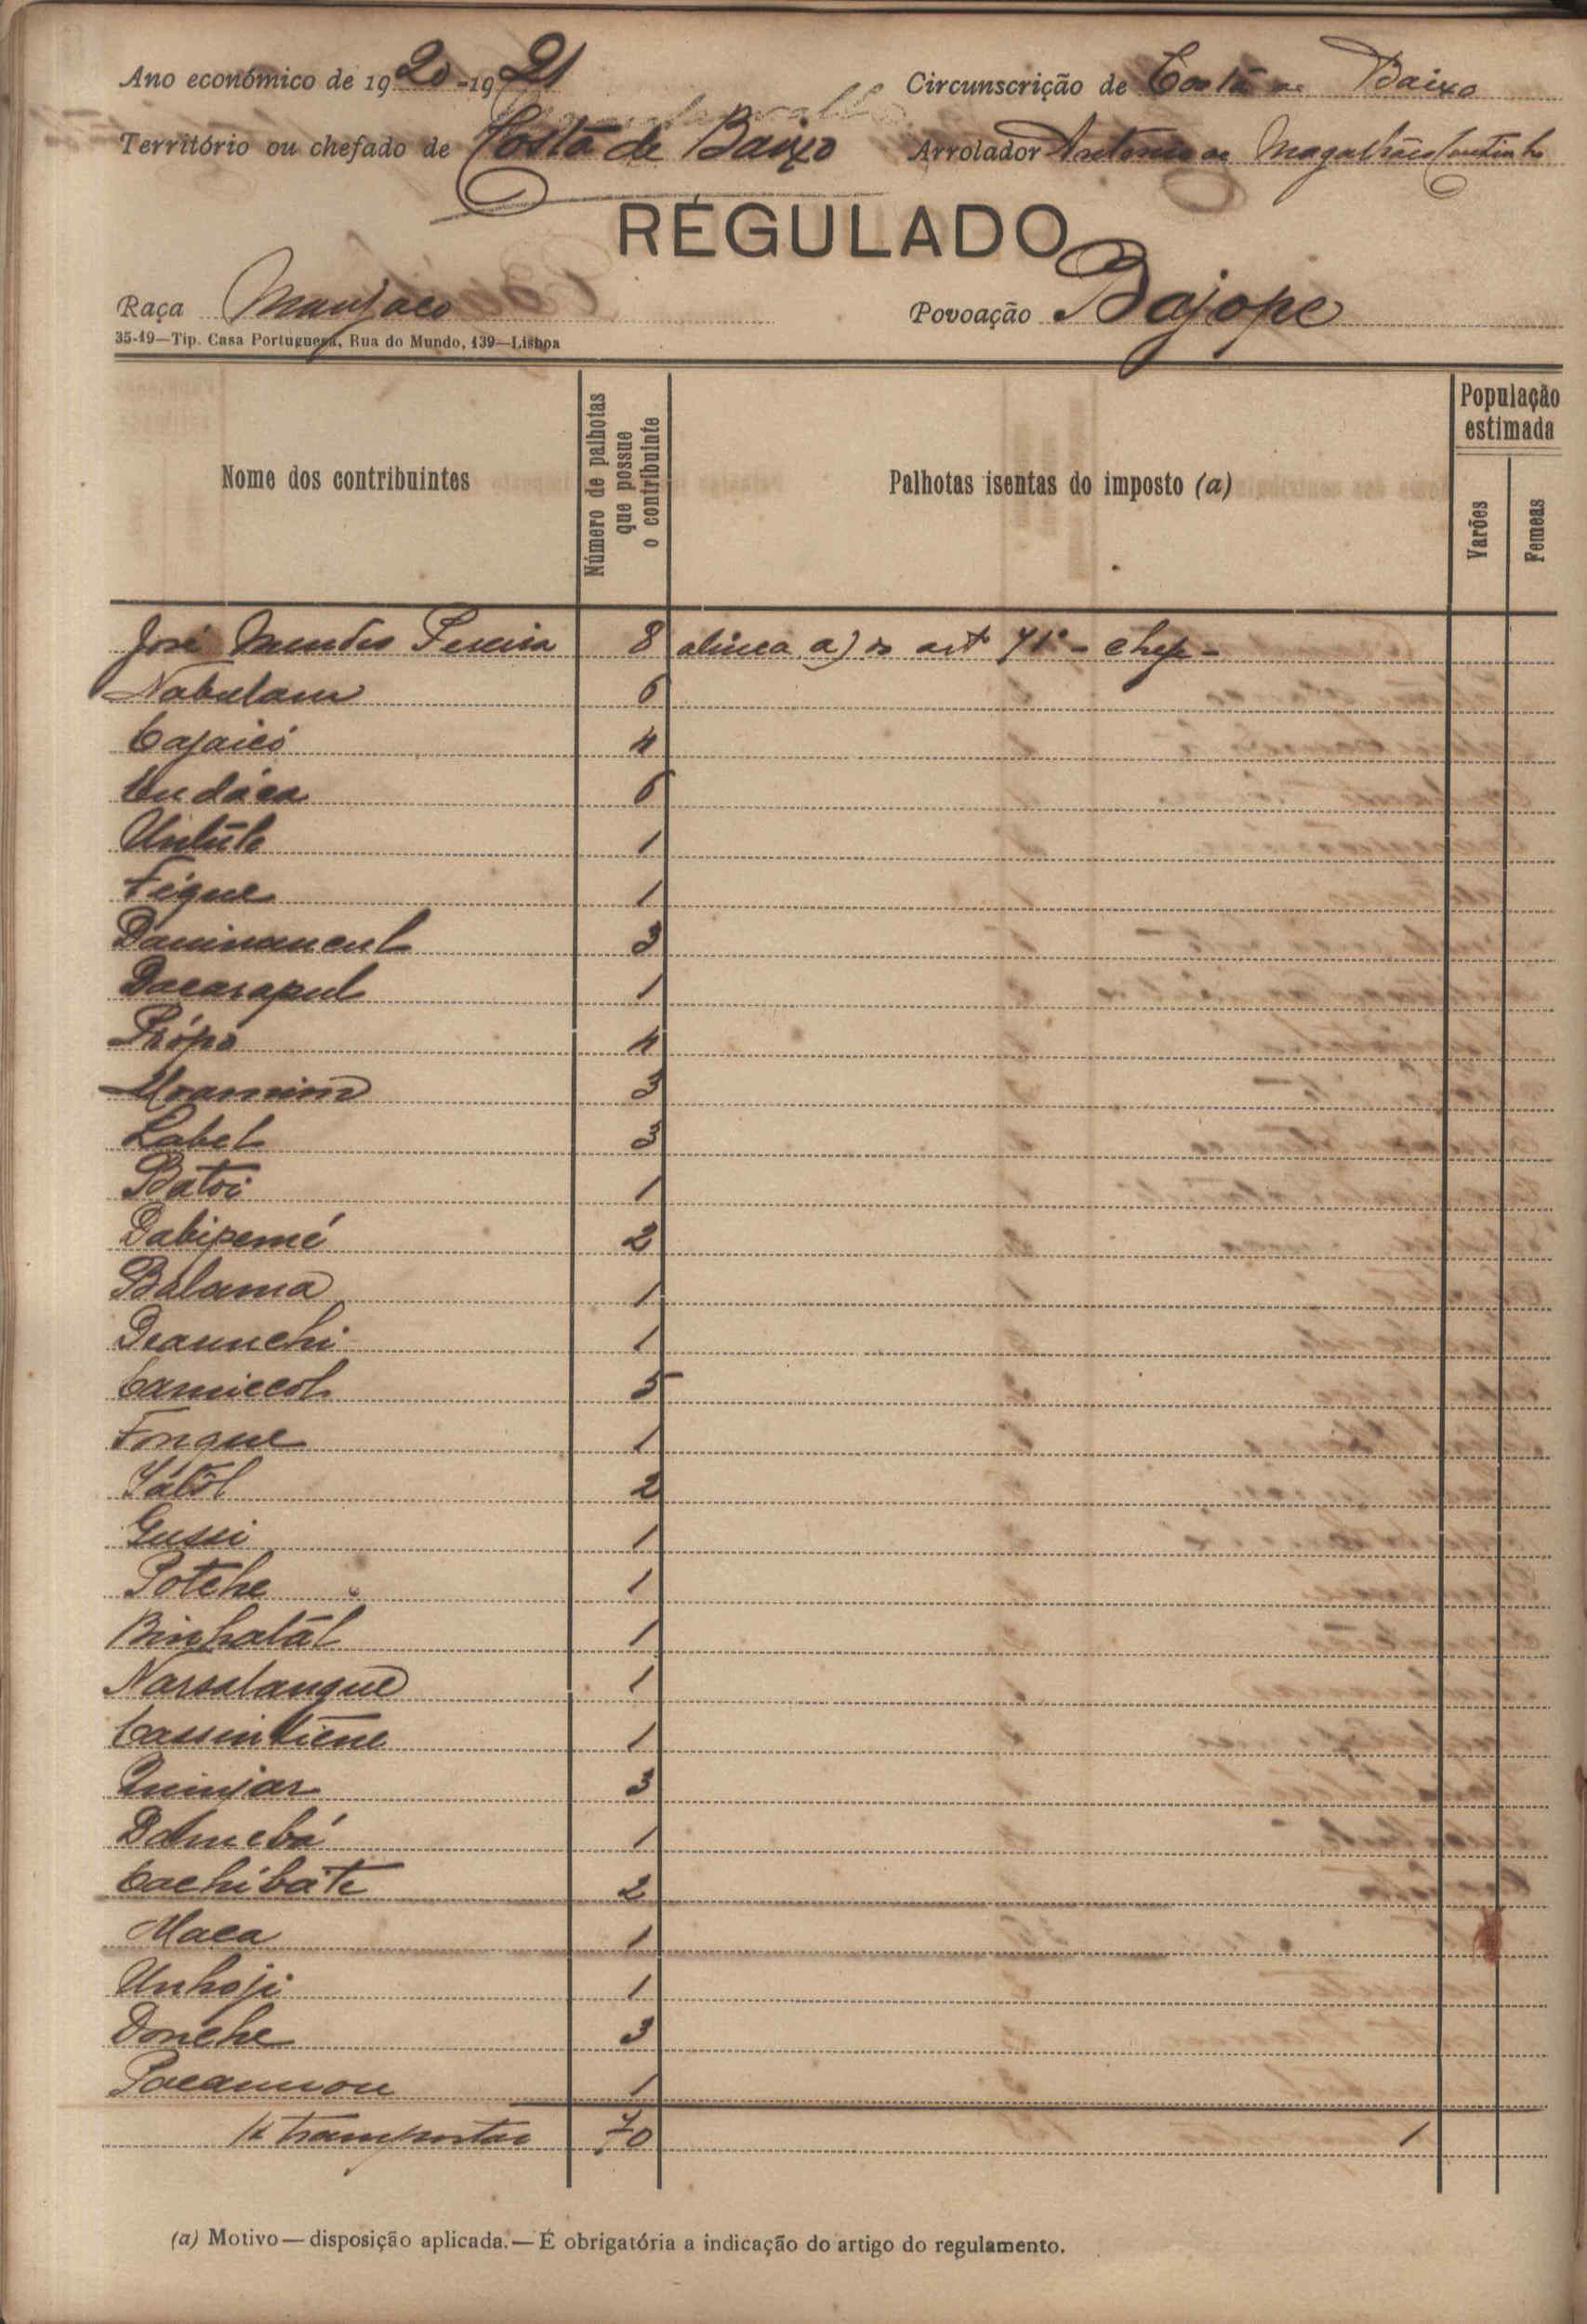 Ano económico de 1920-1921 Circunscrição de Costa de Baixo
Território ou chefado de Costa de Baixo Arrolador Antonio de Magalhães Coutinho
RÉGULADO
Raça Manjaco Povoação Bajope
35-19—Tip. Casa Portuguesa, Rua do Mundo, 139—Lisboa
Nome dos contribuintes
Número de palhotas que possue o contribuinte
Palhotas isentas do imposto (a)
População estimada
Varões
Femeas
José Mendes Pereira 8 alinea a) do art 71º - chefe -
Nabulam 6
Cajaicó 4
6
1
Figue 1
Daminancul 3
Dacarapul 1
Própó 4
3
Label 3
Batoi 1
Dabipemé 2
Balama 1
1
5
Fongue 1
2
Gussi 1
Potche 1
Binhatál 1
Narsalangue 1
Cassintiene 1
Quinjar 3
1
Cachibáte 2
Maca 1
Unhoji 1
Donche 3
1
A transportar 70 1
(a) Motivo—disposição aplicada.—É obrigatória a indicação do artigo do regulamento.